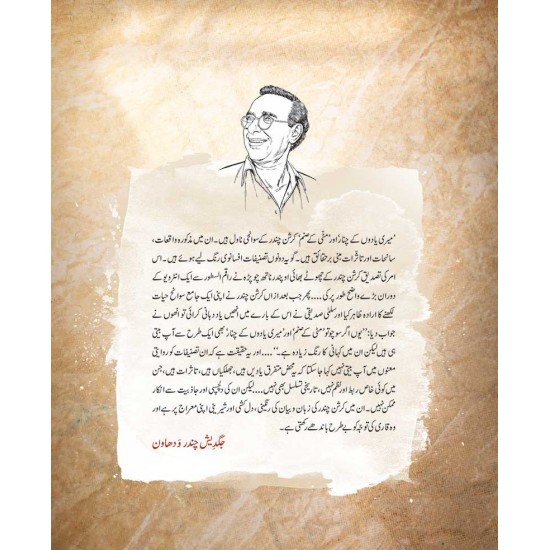 ’میری یادوں کے چنار‘ اور ’مٹی کے صنم‘ کرشن چندر کے سوانحی ناول ہیں۔ ان میں مذکورہ واقعات،
سانحات اور تاثرات مبنی بر حقائق ہیں۔ گو یہ دونوں تصنیفات افسانوی رنگ لیے ہوئے ہیں۔ اس
امر کی تصدیق کرشن چندر کے چھوٹے بھائی اوپندر ناتھ چوپڑہ نے راقم السطور سے ایک انٹرویو کے
دوران بڑے واضح طور پر کی....پھر جب بعد ازاں کرشن چندر نے اپنی ایک جامع سوانح حیات
لکھنے کا ارادہ ظاہر کیا اور سلمیٰ صدیقی نے اس کے بارے میں انھیں یاد دہانی کرائی تو انھوں نے
جواب دیا: ”یوں اگر سوچو تو ’مٹی کے صنم‘ اور ’میری یادوں کے چنار‘ بھی ایک طرح سے آپ بیتی
ہی ہیں لیکن ان میں کہانی کا رنگ زیادہ ہے۔“....اور یہ حقیقت ہے کہ ان تصنیفات کو روایتی
معنوں میں آپ بیتی نہیں کہا جاسکتا کہ یہ محض متفرق یادیں ہیں، جھلکیاں ہیں، تاثرات ہیں، جن
میں کوئی خاص ربط اور نظم نہیں، تاریخی تسلسل بھی نہیں....لیکن ان کی دلچسپی اور جاذبیت سے انکار
ممکن نہیں۔ ان میں کرشن چندر کی زبان و بیان کی رنگینی، دل کشی اور شیرینی اپنی معراج پر ہے اور
وہ قاری کی توجّہ کو بے طرح باندھے رکھتی ہے۔
جگدیش چندر ودھاون